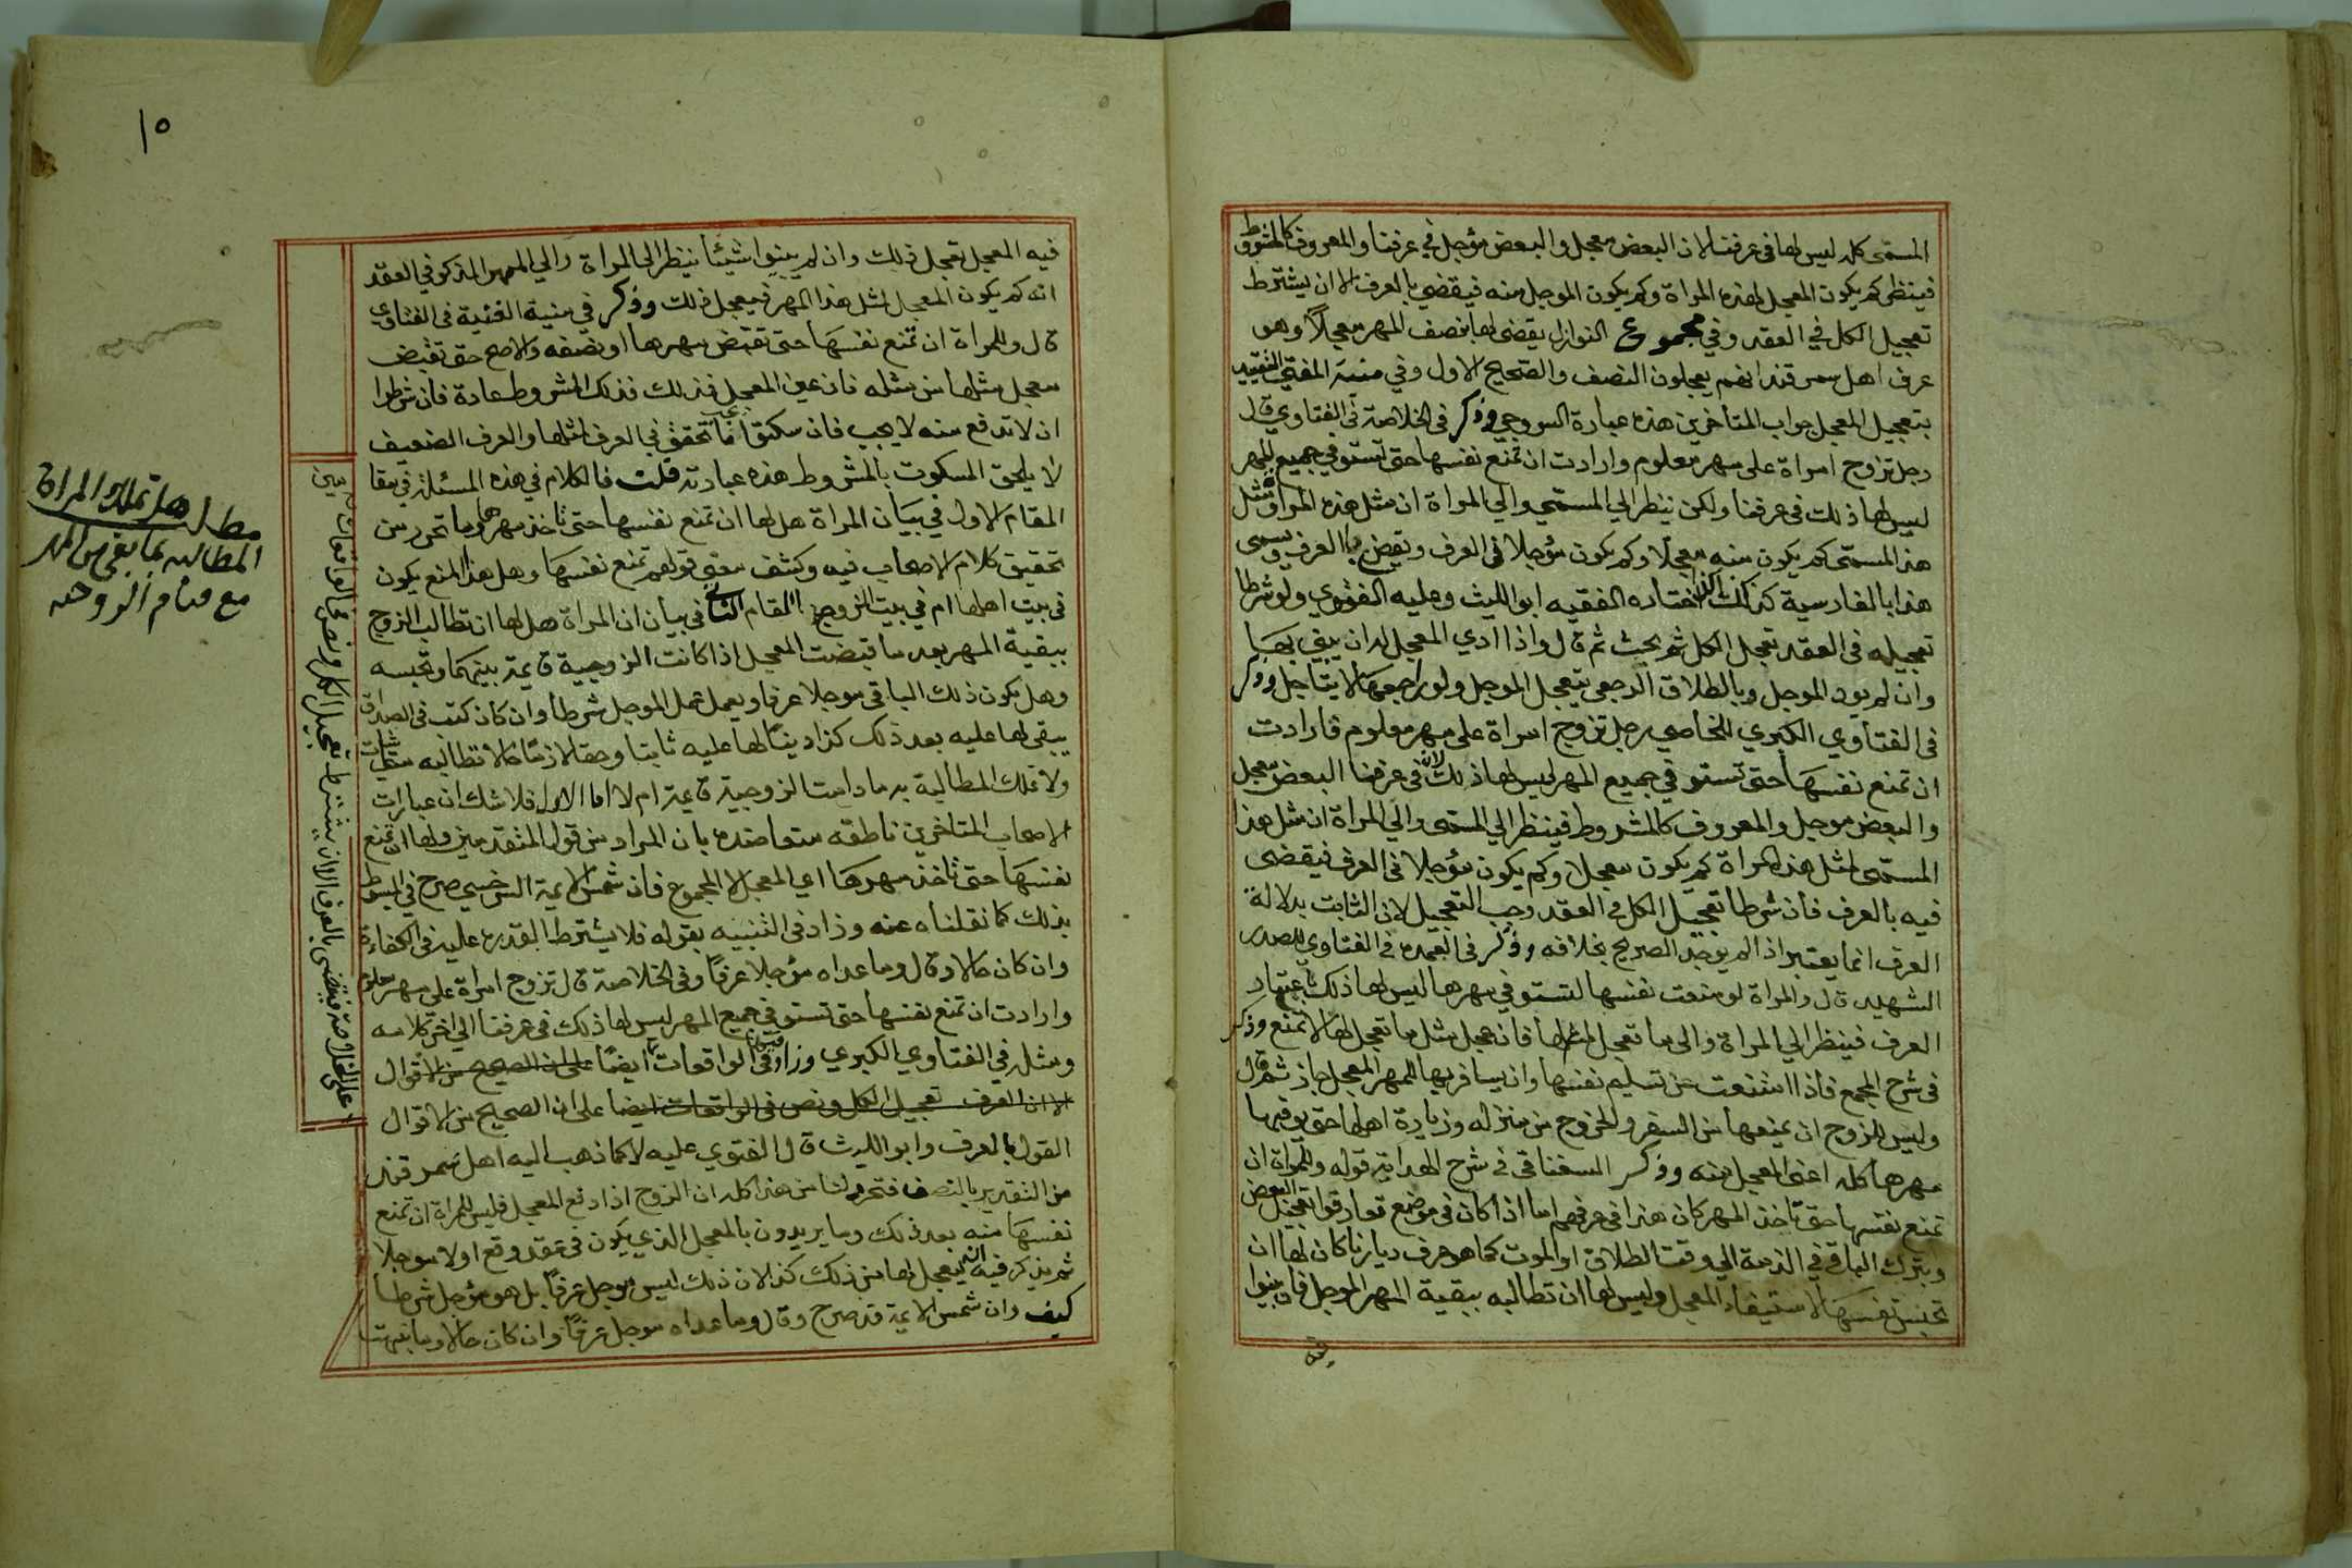 المسمى كله ليس لها في عرفنا لان البعض معجل والبعض مؤجل في عرفنا والمعروف كالمشروط
فينظر كم يكون المعجل لهذه المراة وكم يكون الموجل منه فيقضي بالعرف الا ان يشترط
تعجيل الكل في العقد وفي مجموع النوازل يقضى لها بنصف المهر معجلاً وهو
عرف اهل سمرقند انهم يعجلون النصف والصحيح الاول وفي منية المفتي التقييد
بتعجيل المعجل جواب المتأخرين هذه عبارة السروجي وذكر في الخلاصة في الفتاوي قال
رجل تزوج امراة على مهر معلوم وارادت ان تمنع نفسها حتى تستوفي جميع المهر
ليس لها ذلك في عرفنا ولكن ينظر الي المسمي والي المراة ان مثل هذه المراة ومثل
هذا المسمى كم يكون منه معجلا وكم يكون مؤجلا في العرف ويقضي بالعرف ويسمى
هذا بالفارسية اختاره الفقيه ابو الليث وعليه الفتوي ولو شرطا
تعجيله في العقد تعجل الكل ثم بحث ثم قال واذا ادي المعجل له ان يبني بها
وان لم يود الموجل وبالطلاق الرجعي يتعجل الموجل ولو راجعها لا يتاجل وذكر
في الفتاوي الكبري للخاصي رجل تزوج امراة على مهر معلوم فارادت
ان تمنع نفسها حتى تستوفي جميع المهر ليس لها ذلك لان في عرفنا البعض معجل
والبعض موجل والمعروف كالمشروط فينظر الي المسمى والي المراة ان مثل هذا
المسمى لمثل هذه المراة كم يكون معجلا وكم يكون مؤجلا في العرف فيقضى
فيه بالعرف فان شرطا تعجيل الكل في العقد وجب التعجيل لان الثابت بدلالة
العرف انما يعتبر اذا لم يوجد الصريح بخلافه وذكر في العمده في الفتاوي للصدر
الشهيد قال والمراة لو منعت نفسها لتستوفي مهرها ليس لها ذلك باعتبار
العرف فينظر الي المراة والى ما تعجل لمثلها فان عجل مثل ما تعجل لها لا تمنع وذكر
في شرح المجمع فاذا امتنعت عن تسليم نفسها وان يسافر بها للمهر المعجل جاز ثم قال
وليس للزوج ان يمنعها من السفر والخروج من منزله وزيارة اهلها حتى يوفيها
مهرها كله اعنى المعجل منه وذكر السغناقي في شرح الهداية قوله وللمراة ان
تمنع نفسها حتى تاخذ المهر كان هذا في عرفهم اما اذا كان في موضع تعارفوا تعجيل البعض
ويترك الباقي في الذمة الي وقت الطلاق او الموت كما هو عرف ديارنا كان لها ان
تحبس نفسها لاستيفاء المعجل وليس لها ان تطالبه ببقية المهر الموجل فان بينوا
فيه
١٥
فيه المعجل تعجل ذلك وان لم يبينوا شيئا ينظر الى المراة والي المهر المذكور في العقد
انه كم يكون المعجل لمثل هذا المهر فيعجل ذلك وذكر في منية الغنية في الفتاوي
قال وللمراة ان تمنع نفسها حتى تقبض مهرها او نصفه والاصح حتى تقبض
معجل مثلها من مثله فان عين المعجل فذلك فذلك المشروط عادة فان شرطوا
ان لا تدفع منه لا يجب فان سكتوا فما تحقق في العرف لمثلها والعرف الضعيف
لا يلحق المسكوت بالمشروط هذه عبارته قلت فالكلام في هذه المسئلة في مقا
المقام الاول في بيان المراة هل لها ان تمنع نفسها حتى تاخذ مهرها وما تحرر من
تحقيق كلام الاصحاب فيه وكشف معنى قولهم تمنع نفسها وهل هذا المنع يكون
في بيت اهلها ام في بيت الزوج المقام الثاني في بيان ان المراة هل لها ان تطالب الزوج
ببقية المهر بعد ما قبضت المعجل اذا كانت الزوجية قايمة بينهما وتحبسه
وهل يكون ذلك الباقي موجلا عرفا ويعمل عمل الموجل شرطا وان كان كتب في الصداق
يبقى لها عليه بعد ذلك كذا دينًا لها عليه ثابتا وحقا لازمًا حالا تطالبه متى شات
ولا تملك المطالبة به ما دامت الزوجية قايمة ام لا اما الاول فلا شك ان عبارات
الاصحاب المتاخرين ناطقه متعاضده بان المراد من قول المتقدمين ولها ان تمنع
نفسها حتى تاخذ مهرها اي المعجل لا المجموع فان شمس الايمة السرخسي صرح في المبسوط
بذلك كما نقلناه عنه وزاد في التنبيه بقوله فلا يشترط القدرة عليه في الكفاءة
وان كان حالا وقال وما عداه مؤجلا عرفًا وفي الخلاصة قال تزوج امراة على مهر معلوم
وارادت ان تمنع نفسها حتى تستوفي جميع المهر ليس لها ذلك في عرفنا الي اخر كلامه
ومثله في الفتاوي الكبري وزاد في الواقعات ايضًا على ان الصحيح من الاقوال
الا ان العرف تعجيل الكل ونص في الواقعات ايضا على ان الصحيح من الاقوال
القول بالعرف وابو الليث قال الفتوي عليه لا كما ذهب اليه اهل سمرقند
من التقدير بالنصف فتحرر لنا من هذا كله ان الزوج اذا دفع المعجل فليس للمراة ان تمنع
نفسها منه بعد ذلك وما يريدون بالمعجل الذي يكون في عقد وقع اولا موجلا
ثم يذكر فيه انه يعجل لها من ذلك كذا لان ذلك ليس موجل عرفًا بل هو مؤجل شرطا
كيف وان شمس الايمة قد صرح وقال وما عداه موجل عرفًا وان كان حالا وما
على الخلاصة فيقضى بالعرف الا ان يشترط تعجيل الكل ونص في الواقعات
مطلب هل تملك المراة
المطالبه بما بقي من المهر
مع قيام الزوجيه